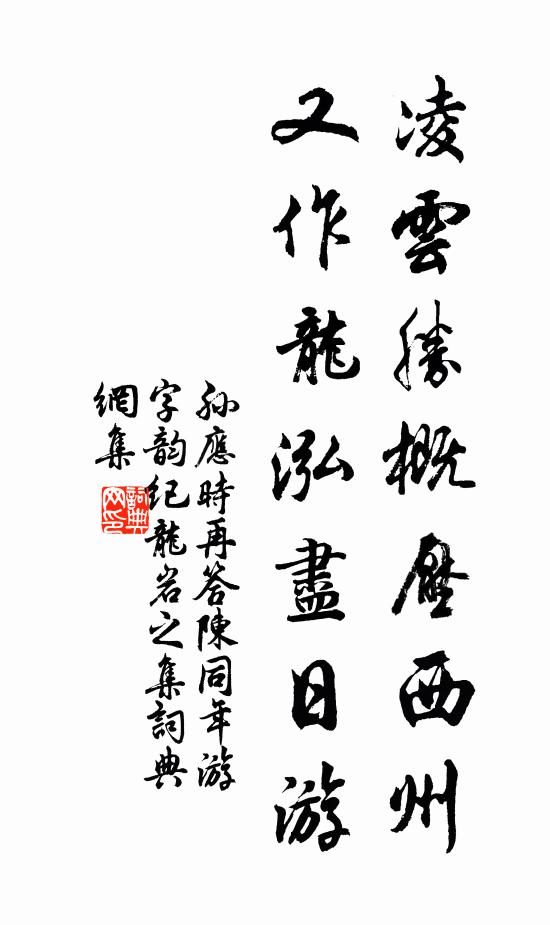 凌雲勝概壓西州
又作龍泓盡日游
孫應時再答陳同年游
字韵紀龍岩之集詞典
網集
詞典
网印